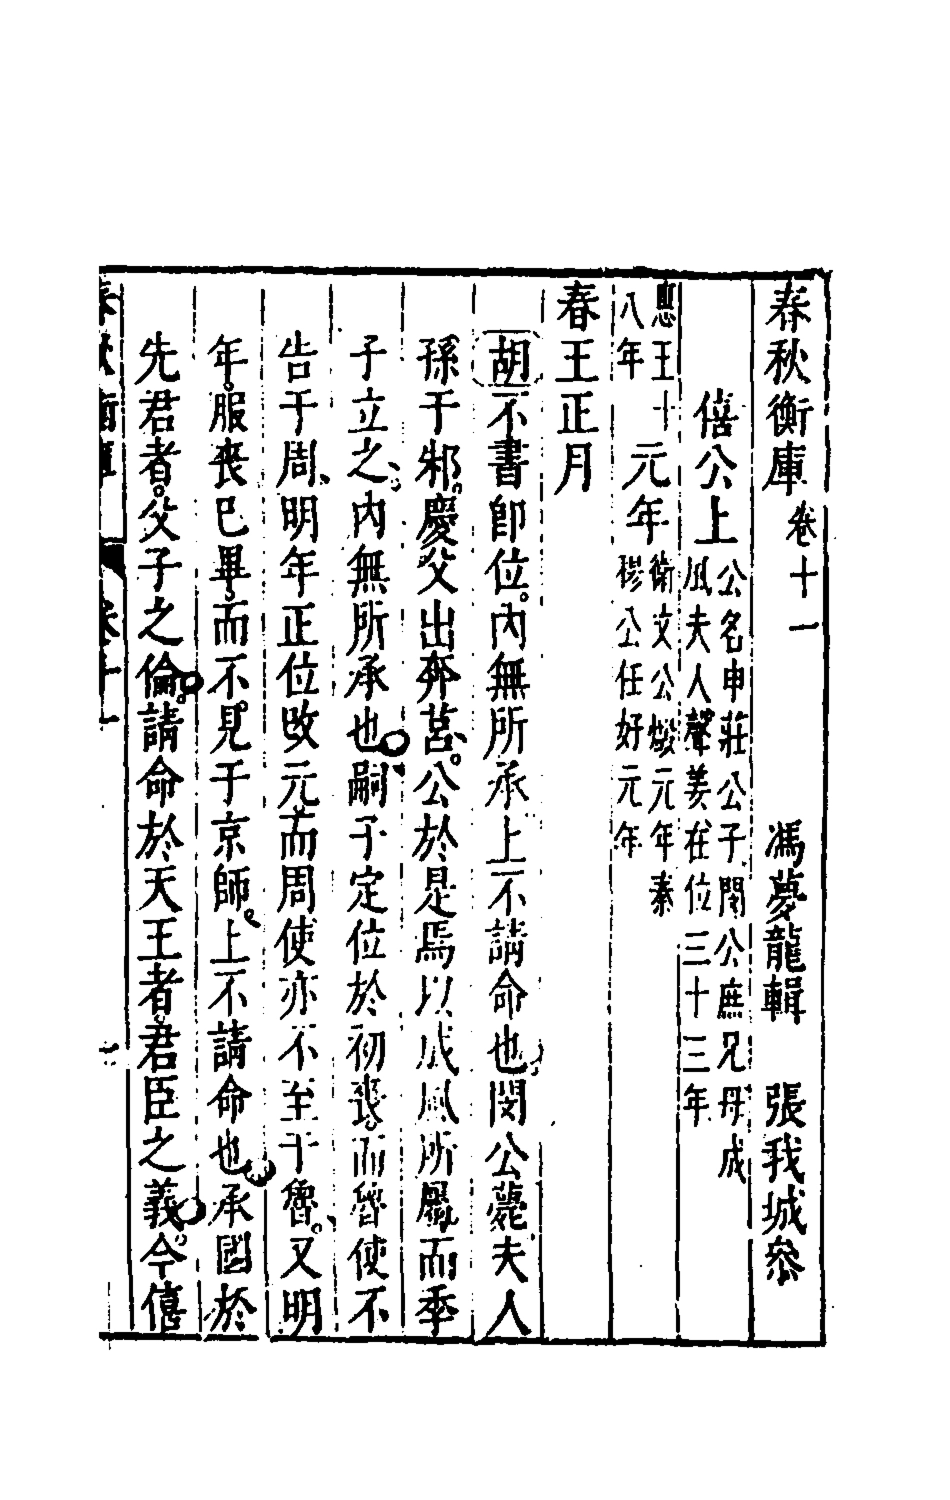 春秋衡庫 卷十一 馮夢龍輯 張我城參
僖公上 公名申莊公子閔公庶兄母成
風夫人聲姜在位三十三年
惠王十八年 元年 衛文公燬元年秦
穆公任好元年
春王正月
胡不書即位內無所承上不請命也閔公薨夫人
孫于邾慶父出奔莒公於是焉以成風所屬而季
子立之內無所承也嗣子定位於初喪而魯使不
告于周明年正位改元而周使亦不至于魯又明
年服喪已畢而不見于京師上不請命也承國於
先君者父子之倫請命於天王者君臣之義今僖
春秋衡庫 卷十一